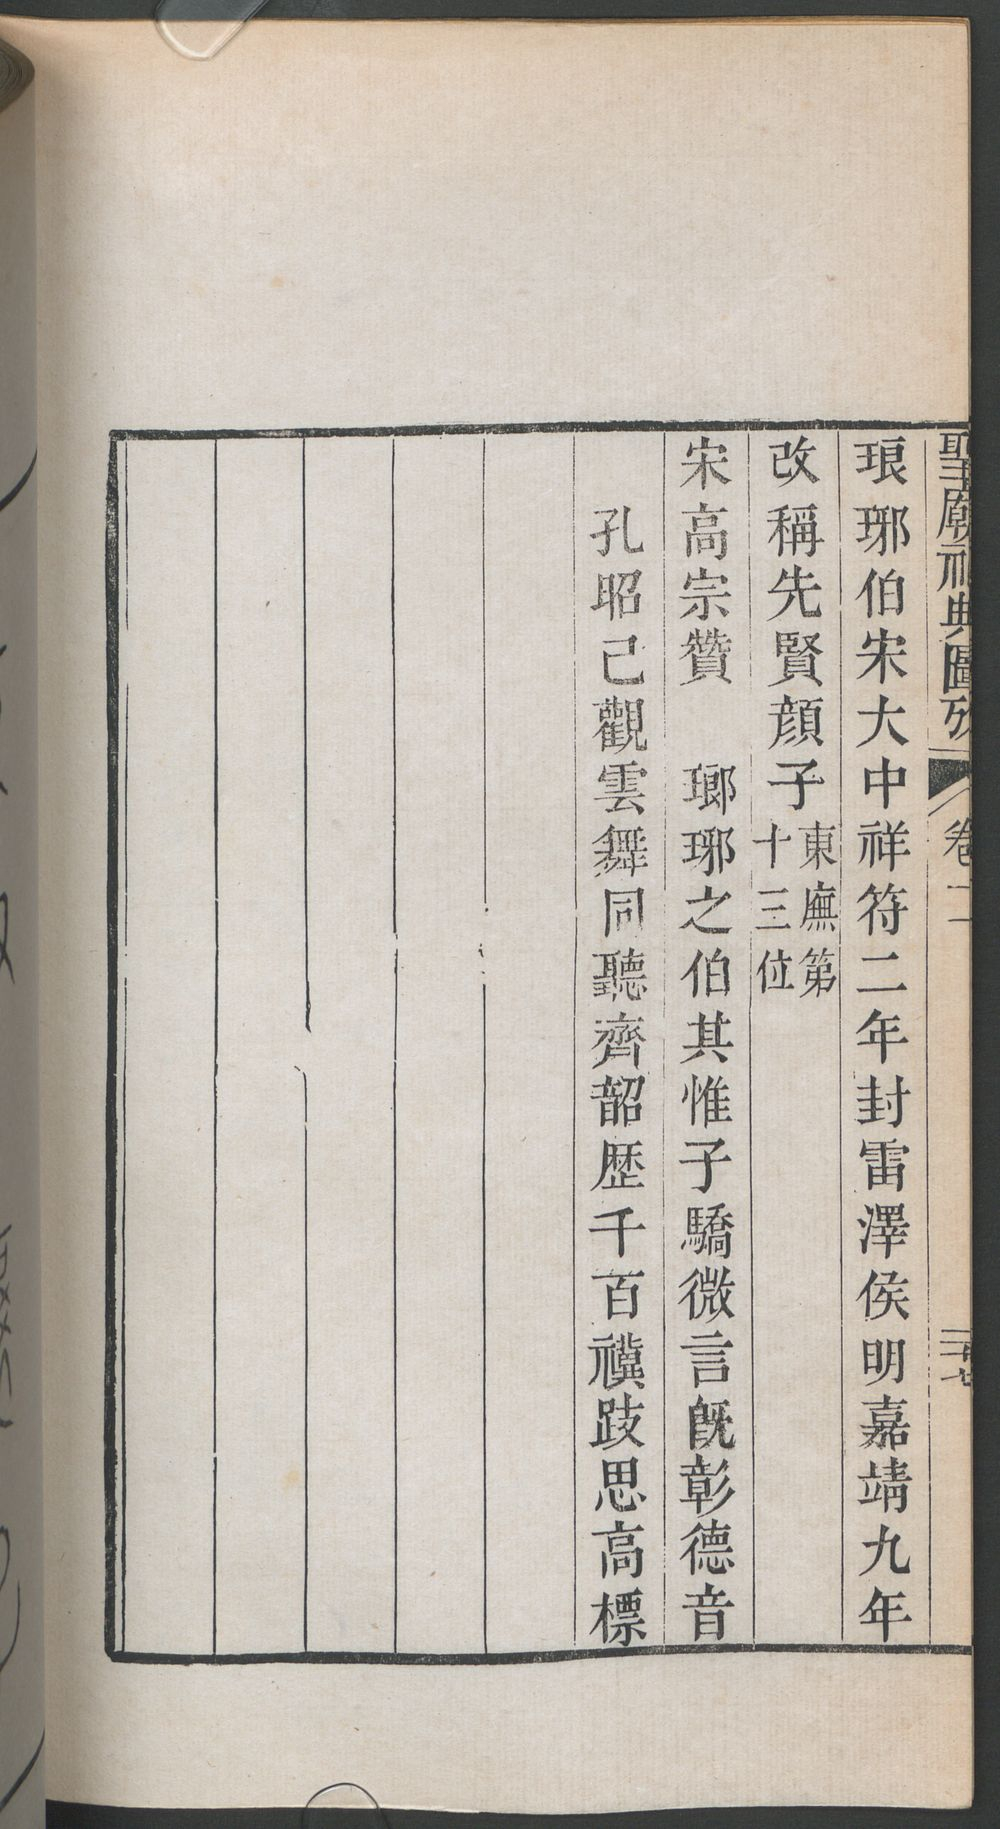 聖廟祀典圖攷 卷二 三十七
琅琊伯宋大中祥符二年封雷澤侯明嘉靖九年
改稱先賢顔子東廡第十三位
宋高宗贊 瑯琊之伯其惟子驕微言旣彰德音
孔昭已觀雲舞同聽齊韶歷千百禩跂思高標